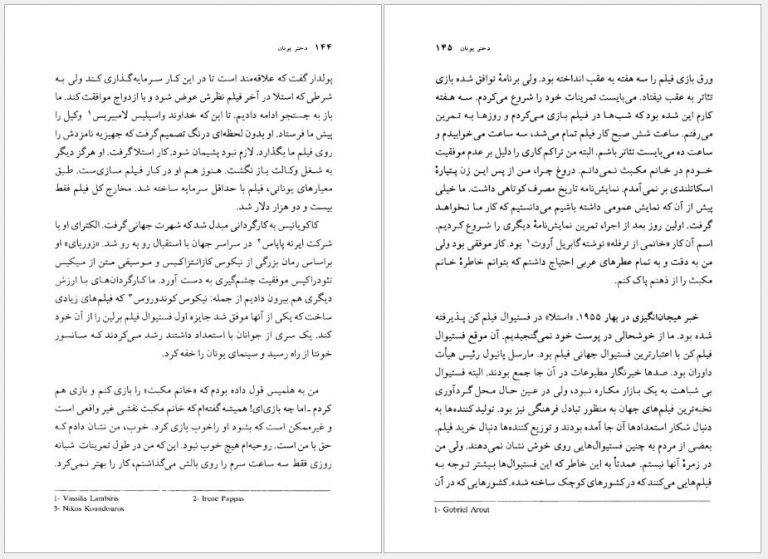 ۱۴۴ دختر یونان
پولدار گفت که علاقه‌مند است تا در این کار سرمایه‌گذاری کند ولی به
شرطی که استلا در آخر فیلم نظرش عوض شود و با ازدواج موافقت کند. ما
باز به جستجو ادامه دادیم. تا این که خداوند واسیلیس لامبیریس۱ وکیل را
پیش ما فرستاد. او بدون لحظه‌ای درنگ تصمیم گرفت که جهیزیه نامزدش را
روی فیلم ما بگذارد. لازم نبود پشیمان شود. کار استلا گرفت. او هرگز دیگر
به شغل وکالت باز نگشت. هنوز هم او در کار فیلم سازی‌ست. طبق
معیارهای یونانی، فیلم با حداقل سرمایه ساخته شد. مخارج کل فیلم فقط
بیست و دو هزار دلار شد.
کاکویانیس به کارگردانی مبدل شد که شهرت جهانی گرفت. الکترای او با
شرکت ایرنه پاپاس۲ در سراسر جهان با استقبال رو به رو شد. «زوربای» او
براساس رمان بزرگی از نیکوس کازانتزاکیس و موسیقی متن از میکیس
تئودراکیس موفقیت چشم‌گیری به دست آورد. ما کارگردان‌های با ارزش
دیگری هم بیرون دادیم از جمله: نیکوس کوندوروس۳ که فیلم‌های زیادی
ساخت که یکی از آنها موفق شد جایزه اول فستیوال فیلم برلین را از آن خود
کند. یک سری از جوانان با استعداد داشتند رشد می‌کردند که سانسور
خونتا از راه رسید و سینمای یونان را خفه کرد.
من به هلمیس قول داده بودم که «خانم مکبث» را بازی کنم و بازی هم
کردم ـ اما چه بازی‌ای! همیشه گفته‌ام که خانم مکبث نقشی غیر واقعی است
و غیرممکن است که بشود او را خوب بازی کرد. خوب، من نشان دادم که
حق با من است. روحیه‌ام هیچ خوب نبود. این که من در طول تمرینات شبانه
روزی فقط سه ساعت سرم را روی بالش می‌گذاشتم، کار را بهتر نمی‌کرد.
1- Vassilis Lambiris 2- Irene Pappas
3- Nikos Koundouros
دختر یونان ۱۴۵
ورق بازی فیلم را سه هفته به عقب انداخته بود. ولی برنامهٔ توافق شده بازی
تئاتر به عقب نیفتاد. می‌بایست تمرینات خود را شروع می‌کردم. سه هفته
کارم این شده بود که شب‌ها در فیلم بازی می‌کردم و روزها به تمرین
می‌رفتم. ساعت شش صبح کار فیلم تمام می‌شد، سه ساعت می‌خوابیدم و
ساعت ده می‌بایست تئاتر باشم. البته من تراکم کاری را دلیل بر عدم موفقیت
خودم در خانم مکبث نمی‌دانم. دروغ چرا، من از پس این زن پتیارهٔ
اسکاتلندی بر نمی‌آمدم. نمایش‌نامه تاریخ مصرف کوتاهی داشت. ما خیلی
پیش از آن که نمایش عمومی داشته باشیم می‌دانستیم که کار ما نخواهد
گرفت. اولین روز بعد از اجرا، تمرین نمایش‌نامهٔ دیگری را شروع کردیم.
اسم آن کار «خانمی از ترفله» نوشته گابریل آروت۱ بود. کار موفقی بود ولی
من به دقت و به تمام عطرهای عربی احتیاج داشتم که بتوانم خاطرهٔ خانم
مکبث را از ذهنم پاک کنم.
خبر هیجان‌انگیزی در بهار ۱۹۵۵. «استلا» در فستیوال فیلم کن پذیرفته
شده بود. ما از خوشحالی در پوست خود نمی‌گنجیدیم. آن موقع فستیوال
فیلم کن با اعتبارترین فستیوال جهانی فیلم بود. مارسل پانیول رئیس هیأت
داوران بود. صدها خبرنگار مطبوعات در آن جا جمع بودند. البته فستیوال
بی شباهت به یک بازار مکاره نبود، ولی در عین حال محل گردآوری
نخبه‌ترین فیلم‌های جهان به منظور تبادل فرهنگی نیز بود. تولید کننده‌ها به
دنبال شکار استعدادها آن جا آمده بودند و توزیع کننده‌ها دنبال خرید فیلم.
بعضی از مردم به چنین فستیوال‌هایی روی خوش نشان نمی‌دهند. ولی من
در زمرهٔ آنها نیستم. عمدتاً به این خاطر که این فستیوال‌ها بیشتر توجه به
فیلم‌هایی می‌کنند که در کشورهای کوچک ساخته شده. کشورهایی که در آن
1- Gobriel Arout